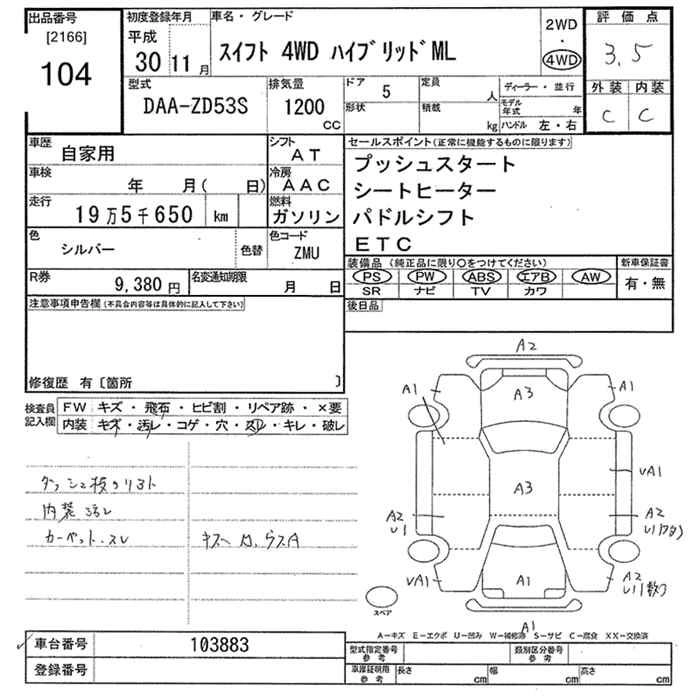 出品番号 初度登録年月 車名・グレード 2WD 評価点
[2166] 平成 ・
104 30 11月 スイフト 4WD ハイブリッドML 4WD 3.5
型式 排気量 ドア 5 定員 人 ディーラー・並行 外装 内装
DAA-ZD53S 1200 CC 形状 積載 kg モデル年式 年 C C
ハンドル 左・右
車歴 自家用 シフト AT セールスポイント(正常に機能するものに限ります)
車検 年 月( 日) 冷房 AAC プッシュスタート
シートヒーター
走行 19万5千650 km 燃料 ガソリン パドルシフト
色 シルバー 色替 色コード ZMU ETC
R券 9,380円 名変通知期限 月 日 装備品(純正品に限り○をつけてください) 新車保証書
PS PW ABS エアB AW 有・無
SR ナビ TV カワ
注意事項申告欄(不具合内容等は具体的に記入して下さい) 後日品
修復歴 有〔箇所 〕
検査員記入欄 FW キズ・飛石・ヒビ割・リペア跡・×要
内装 キズ・汚レ・コゲ・穴・スレ・キレ・破レ
内装 汚レ
カーペット スレ
A2
A1 A3 A1
A3 UA1
A2 A2
U1
UA1 A1 A2
スペア
A1
A-キズ E-エクボ U-凹み W-補修跡 S-サビ C-腐食 XX-交換済
車台番号 103883 型式指定番号 参考 類別区分番号 参考
登録番号 車庫証明用 参考 長さ cm 幅 cm 高さ cm